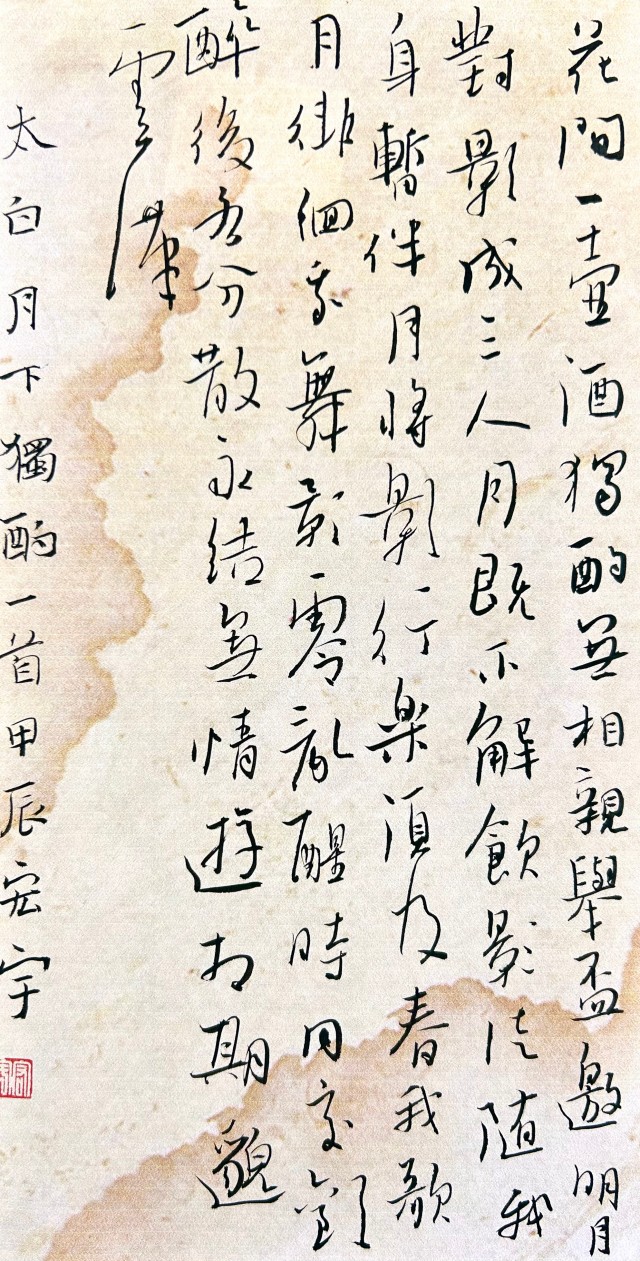 花間一壺酒獨酌無相親舉盃邀明月
對影成三人月既不解飲影徒随我
身暫伴月將影行樂須及春我歌
月徘徊我舞影零亂醒時同交歡
醉後各分散永结無情遊相期邈
雲漢
太白月下獨酌一首甲辰宏宇